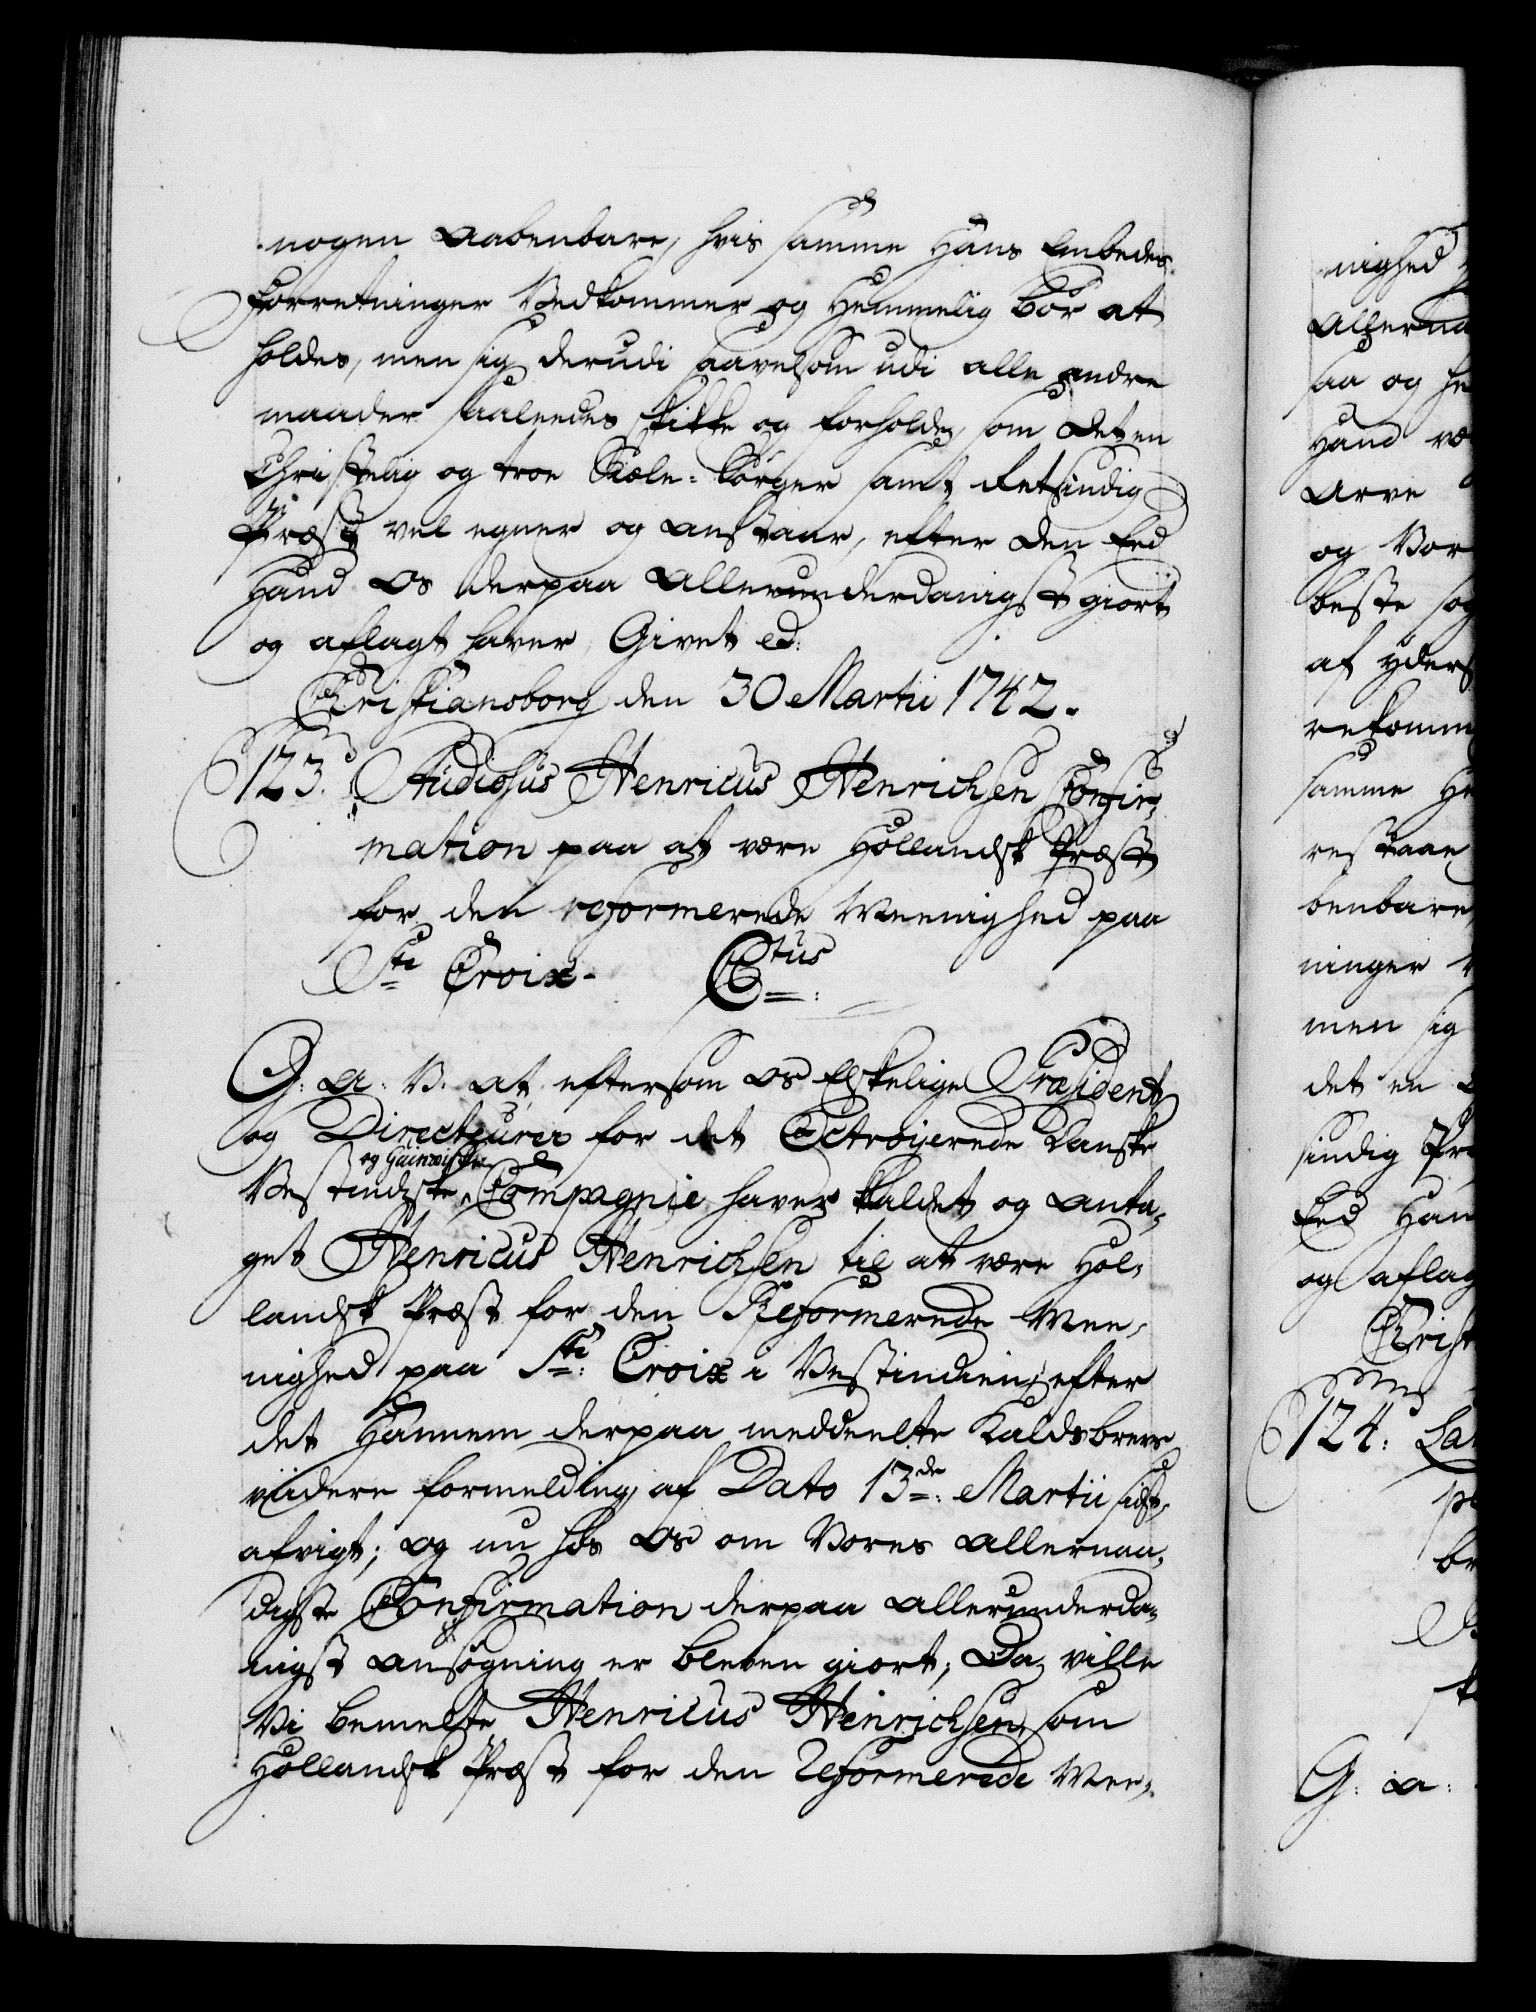 nogen Aabenbare, hvis samme Hans Embedes
Forretninger Vedkommer og Hemmelig bör at
holdes, men sig derudi saavelsom udi alle andre
maader saaleedes skikke og forholde, som det en
Christelig og troe Siæle-Sörger samt Retsindig
Præst vel egner og anstaar, efter den Eed
Hand Os derpaa Allerunderdanigst giort
og aflagt haver, Givet ed:
Christiansborg den 30 Martii 1742.
123. Studiosus Henricus Henrichsen Confir,
mation paa at være Hollandsk Præst
for den reformerede Meenighed paa
Ste Croix. Ctus
G: A: V. At, eftersom os Elskelige Præsident
og Directeurer for det Octroyerede Danske
og Guineiske
Vestindiske Compagnie haver kaldet og anta,
get Henricus Henrichsen til at være Hol,
landsk Præst for den Reformerede Mee,
nighed paa Ste: Croix i Vestindien, efter
det Hannem derpaa meddeelte Kaldsbrevs
viidere formelding af Dato 13de: Martii sidst,
afvigt; og nu hos Os om Vores allernaa,
digste Confirmation derpaa allerunderda,
nigst ansögning er bleven giort; Da ville
Vi bemelte Henricus Heinrichsen, som
Hollandsk Præst for den Reformerede Mee,
nighed
Allerna
saa og he
Hand væ
Arve
og Vor
beste sög
af yders
rekomm
samme He
restaae
benbare
ninger
men sig
det en
sindig Præ
Eed Han
og aflag
Christ
124:
G: A: